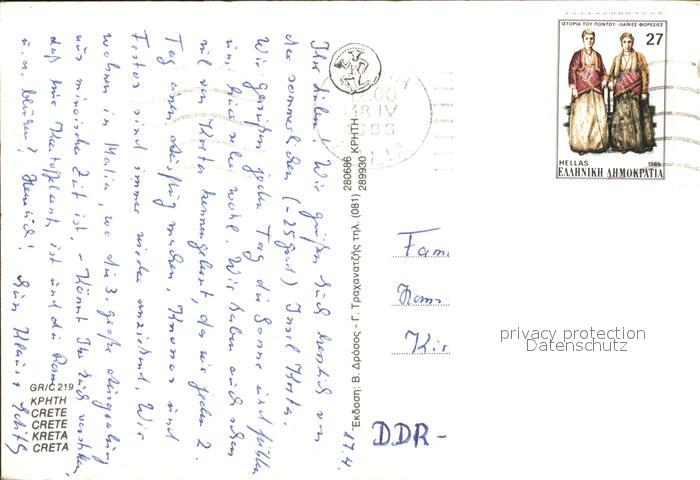 ΙΣΤΟΡΙΑ ΤΟΥ ΠΟΝΤΟΥ - ΛΑΪΚΕΣ ΦΟΡΕΣΙΕΣ
27
HELLAS 1985
ΕΛΛΗΝΙΚΗ ΔΗΜΟΚΡΑΤΙΑ
18 IV
17.4.
Ihr Lieben! Wir grüßen Euch herzlich von
der sommerlichen (-25 Grad) Insel Kreta.
Wir genießen jeden Tag die Sonne und fühlen
uns hier sehr wohl. Wir haben auch schon
viel von Kreta kennengelernt, da wir jeden 2.
Tag einen Ausflug machen, Knossos und
Festos sind immer wieder anziehend. Wir
wohnen in Malia, wo die 3. große Ausgrabung
aus minoischer Zeit ist. - Könnt Ihr Euch vorstellen,
daß hier Kartoffelernte ist und die
u.a. blühen? Herzlich!
Έκδοση: Β. Δρόσος - Γ. Τραχανατζής τηλ. (081) 280686 289930 ΚΡΗΤΗ
Fam.
DDR-
GR/C 219
ΚΡΗΤΗ
CRETE
CRETE
KRETA
CRETA
privacy protection
Datenschutz